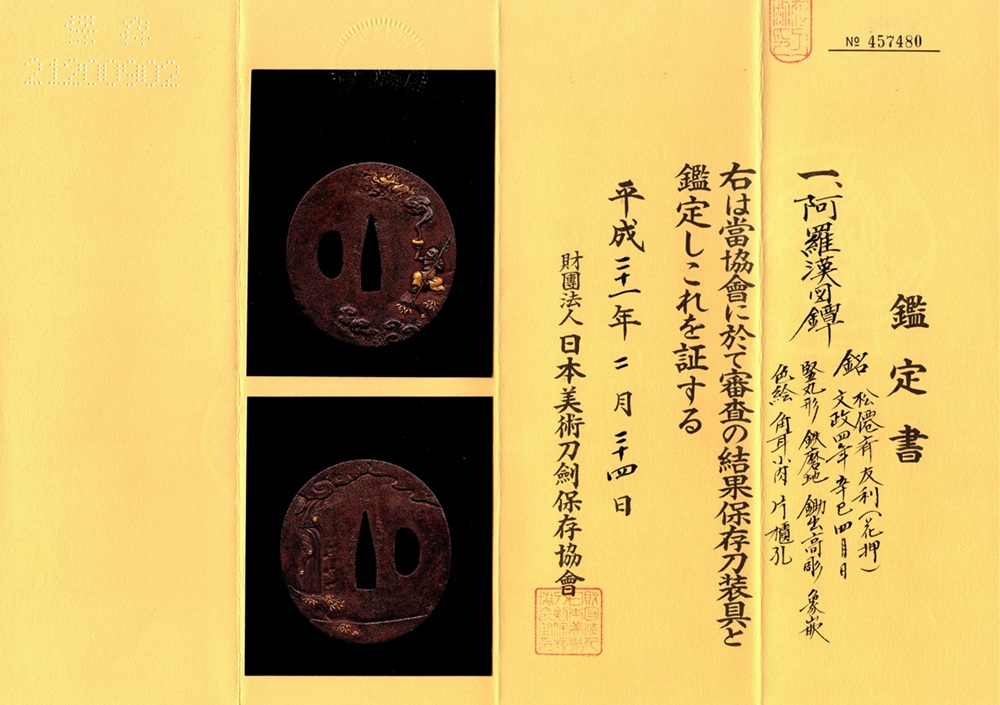 鑑定書
№ 457480
一、阿羅漢図鐔
銘 松僊斎友利(花押)
文政四年辛巳四月日
竪丸形 鉄磨地 鋤出高彫 象嵌
色絵 角耳小肉 片櫃孔
右は當協會に於て審査の結果保存刀装具と
鑑定しこれを証する
平成二十一年二月二十四日
財團法人日本美術刀劍保存協會
保存
21200902